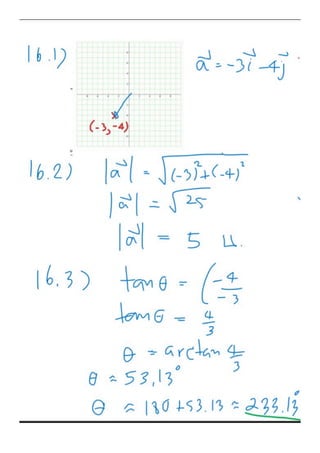 16.1)
a⃗ = -3i⃗ -4j⃗
(-3,-4)
16.2) |a⃗| = √(-3)²+(-4)²
|a⃗| = √25
|a⃗| = 5 u.
16.3) tanθ = (-4/-3
tanθ = 4/3
θ = arctan 4/3
θ ≈ 53,13°
θ ≈ 180+53.13 ≈ 233.13°